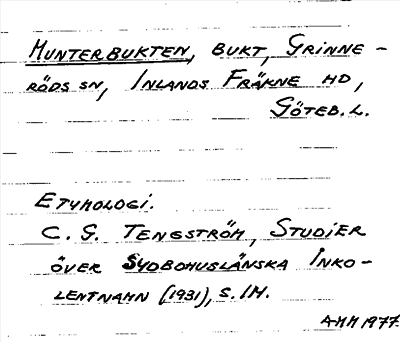 MUNTERBUKTEN, BUKT, GRINNE-
RÖDS SN, INLANDS FRÄKNE HD,
GÖTEB. L.
ETYMOLOGI.
C. G. TENGSTRÖM, STUDIER
ÖVER SYDBOHUSLÄNSKA INKO-
LENTNAMN (1931), S. 
1977